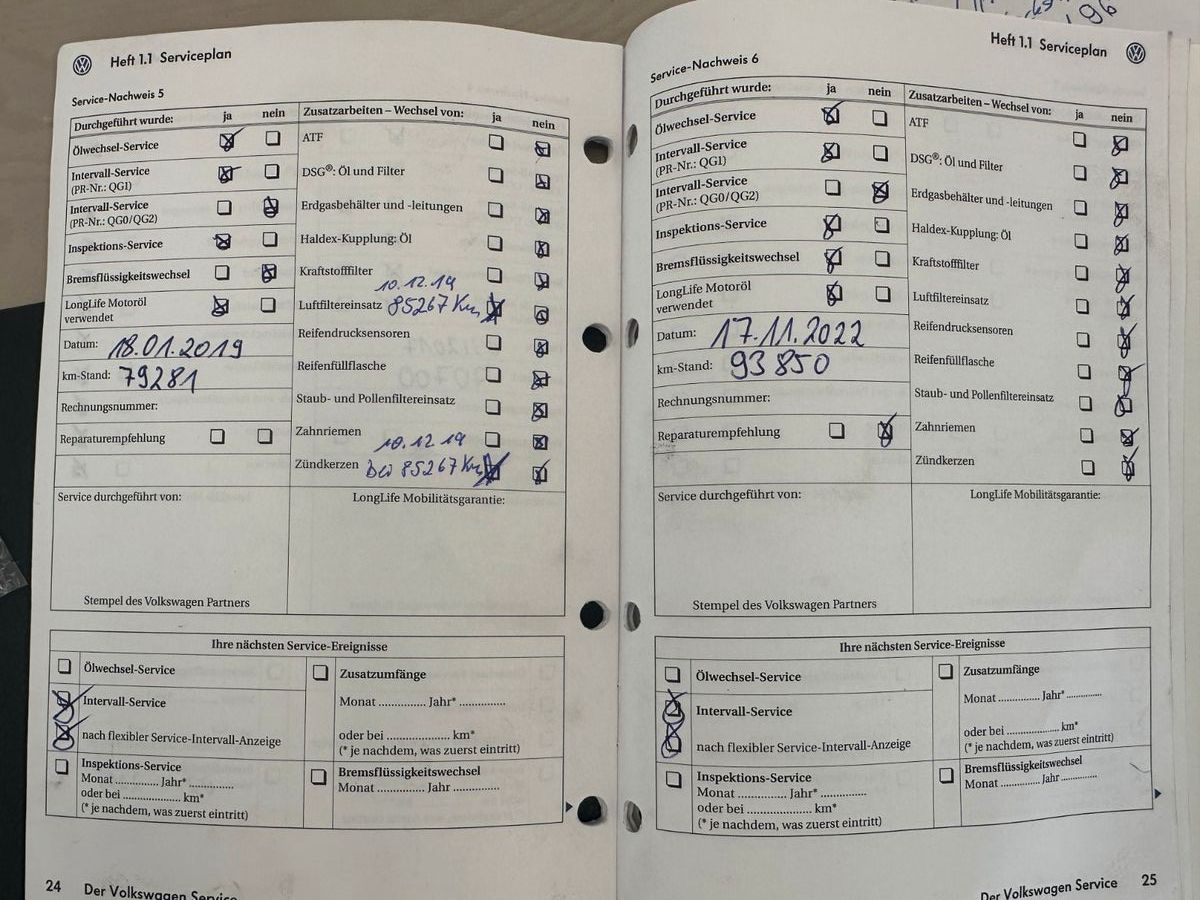 Heft 1.1 Serviceplan
Service-Nachweis 5
Durchgeführt wurde: ja nein
Ölwechsel-Service
Intervall-Service
(PR-Nr.: QG1)
Intervall-Service
(PR-Nr.: QG0/QG2)
Inspektions-Service
Bremsflüssigkeitswechsel
LongLife Motoröl
verwendet
Datum: 18.01.2019
km-Stand: 79281
Rechnungsnummer:
Reparaturempfehlung
Zusatzarbeiten – Wechsel von: ja nein
ATF
DSG®: Öl und Filter
Erdgasbehälter und -leitungen
Haldex-Kupplung: Öl
Kraftstofffilter
10.12.19
Luftfiltereinsatz 85267 Km
Reifendrucksensoren
Reifenfüllflasche
Staub- und Pollenfiltereinsatz
Zahnriemen
10.12.19
Zündkerzen bei 85267 Km
Service durchgeführt von:
Stempel des Volkswagen Partners
LongLife Mobilitätsgarantie:
Ihre nächsten Service-Ereignisse
Ölwechsel-Service
Intervall-Service
nach flexibler Service-Intervall-Anzeige
Inspektions-Service
Monat .............. Jahr* ..............
oder bei .................... km*
(* je nachdem, was zuerst eintritt)
Zusatzumfänge
Monat .............. Jahr* ..............
oder bei .................... km*
(* je nachdem, was zuerst eintritt)
Bremsflüssigkeitswechsel
Monat .............. Jahr ..............
24 Der Volkswagen Service
Heft 1.1 Serviceplan
Service-Nachweis 6
Durchgeführt wurde: ja nein
Ölwechsel-Service
Intervall-Service
(PR-Nr.: QG1)
Intervall-Service
(PR-Nr.: QG0/QG2)
Inspektions-Service
Bremsflüssigkeitswechsel
LongLife Motoröl
verwendet
Datum: 17.11.2022
km-Stand: 93850
Rechnungsnummer:
Reparaturempfehlung
Zusatzarbeiten – Wechsel von: ja nein
ATF
DSG®: Öl und Filter
Erdgasbehälter und -leitungen
Haldex-Kupplung: Öl
Kraftstofffilter
Luftfiltereinsatz
Reifendrucksensoren
Reifenfüllflasche
Staub- und Pollenfiltereinsatz
Zahnriemen
Zündkerzen
Service durchgeführt von:
Stempel des Volkswagen Partners
LongLife Mobilitätsgarantie:
Ihre nächsten Service-Ereignisse
Ölwechsel-Service
Intervall-Service
nach flexibler Service-Intervall-Anzeige
Inspektions-Service
Monat .............. Jahr* ..............
oder bei .................... km*
(* je nachdem, was zuerst eintritt)
Zusatzumfänge
Monat .............. Jahr* ..............
oder bei .................... km*
(* je nachdem, was zuerst eintritt)
Bremsflüssigkeitswechsel
Monat .............. Jahr ..............
Der Volkswagen Service 25